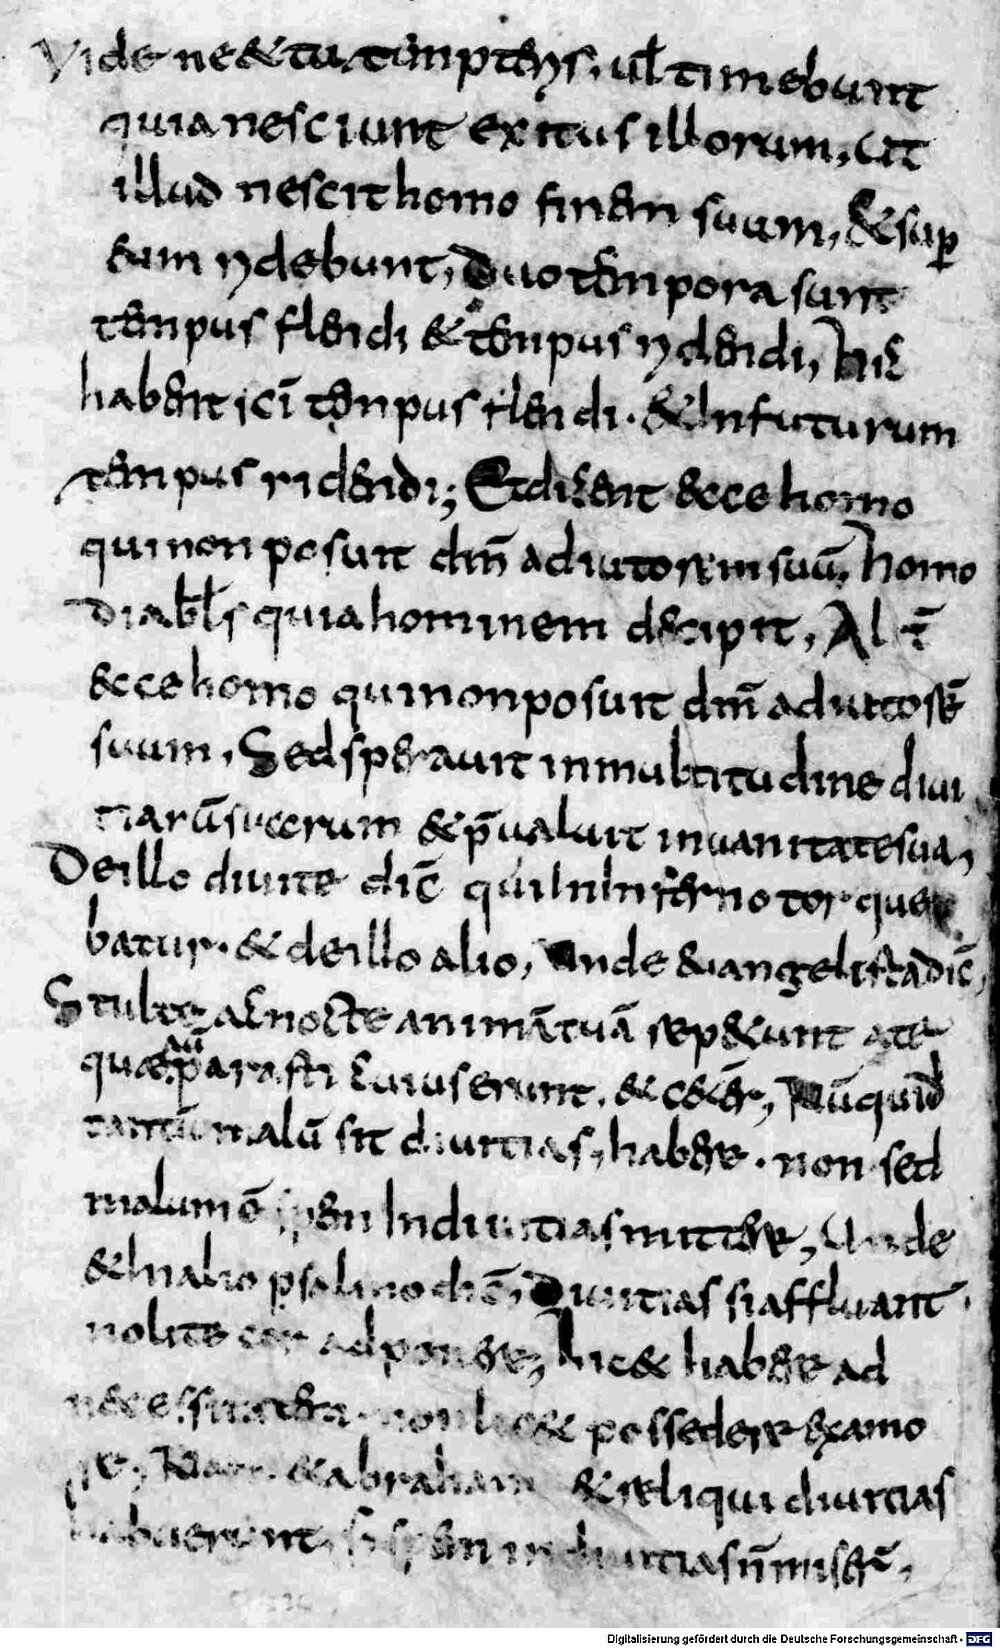 Vide ne & tu tempteris, vel timebunt
quia nesciunt exitus illorum, ut
illud nescit homo finem suum, & sup
eum ridebunt, Duo tempora sunt
tempus flendi & tempus ridendi, hic
habent sci tempus flendi. & In futurum
tempus ridendi; Et dicent ecce homo
qui non posuit dm̄ adiutorem suū, homo
diabl̄s quia hominem decipit, Alt̄
ecce homo qui non posuit dm̄ adiutorē
suum, Sed speravit in multitudine divi
tiarū suarum & p̄valuit in vanitate sua,
De illo divite dic̄ qui In Inferno torque
batur. & de illo alio, Unde evangelista dic̄,
Stulte ac nocte animā tuā repetunt a te
quae aū p̄parasti cuius erunt. & cet̄er, Nūquid
tantū malū sit divitias, habere. non sed
malum ē spem In divitias mittere, Unde
& In alio psalmo dic̄, Divitias si affluant.
nolite cor adponere, hic & habere ad
necessitatem. non licet possedere ex amo
re, Nam & abraham & reliqui divitias
habuerunt, si spem in divitias n̄ miser̄,
Digitalisierung gefördert durch die Deutsche Forschungsgemeinschaft - DFG